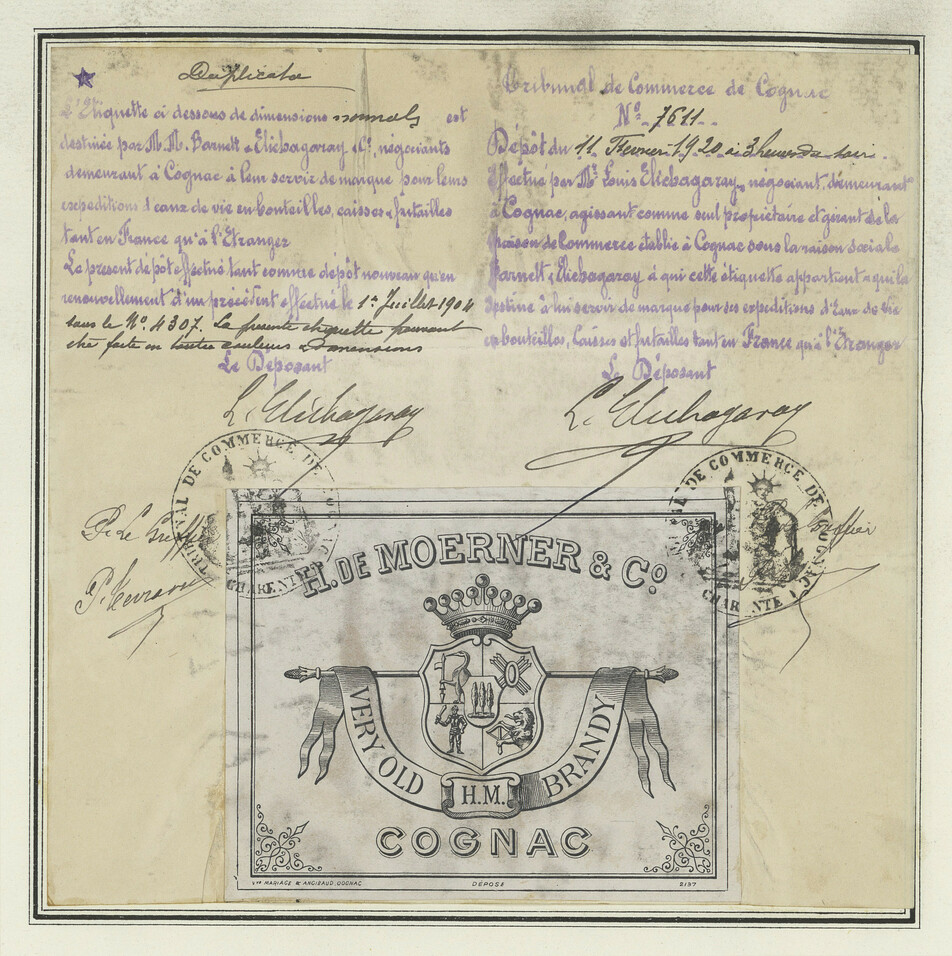 Duplicata
L'Etiquette ci dessous de dimensions normals est
destinée par M.M. Barnett & Elichagaray & Cie, négociants
demeurant à Cognac à leur servir de marque pour leurs
expeditions d'eaux de vie en bouteilles, caisses & futailles
tant en France qu'à l'Etranger
Le présent dépôt effectué tant comme dépôt nouveau qu'en
renouvellement d'un précédent effectué le 1er Juillet 1904
sous le No. 4307. La présente étiquette pouvant
être faite en toutes couleurs & dimensions
Le Déposant
L. Elichagaray
Tribunal de Commerce de Cognac
No. 7611
Dépôt du 11 Février 1920 à 3 heures du soir.
Effectué par Mr. Louis Elichagaray, négociant, demeurant
à Cognac, agissant comme seul propriétaire et gérant de la
Maison de Commerce établie à Cognac sous la raison sociale
Barnett & Elichagaray à qui cette étiquette appartient & qui la
destine à lui servir de marque pour ses expéditions d'Eaux de Vie
en bouteilles, Caisses et futailles tant en France qu'à l'Etranger
Le Déposant
L. Elichagaray
TRIBUNAL DE COMMERCE DE COGNAC
CHARENTE
TRIBUNAL DE COMMERCE DE COGNAC
CHARENTE
P. Le Greffier
Greffier
H. DE MOERNER & Co
VERY OLD
H.M.
BRANDY
COGNAC
Vve MARIAGE & ANGIBAUD, COGNAC
DÉPOSÉ
2197